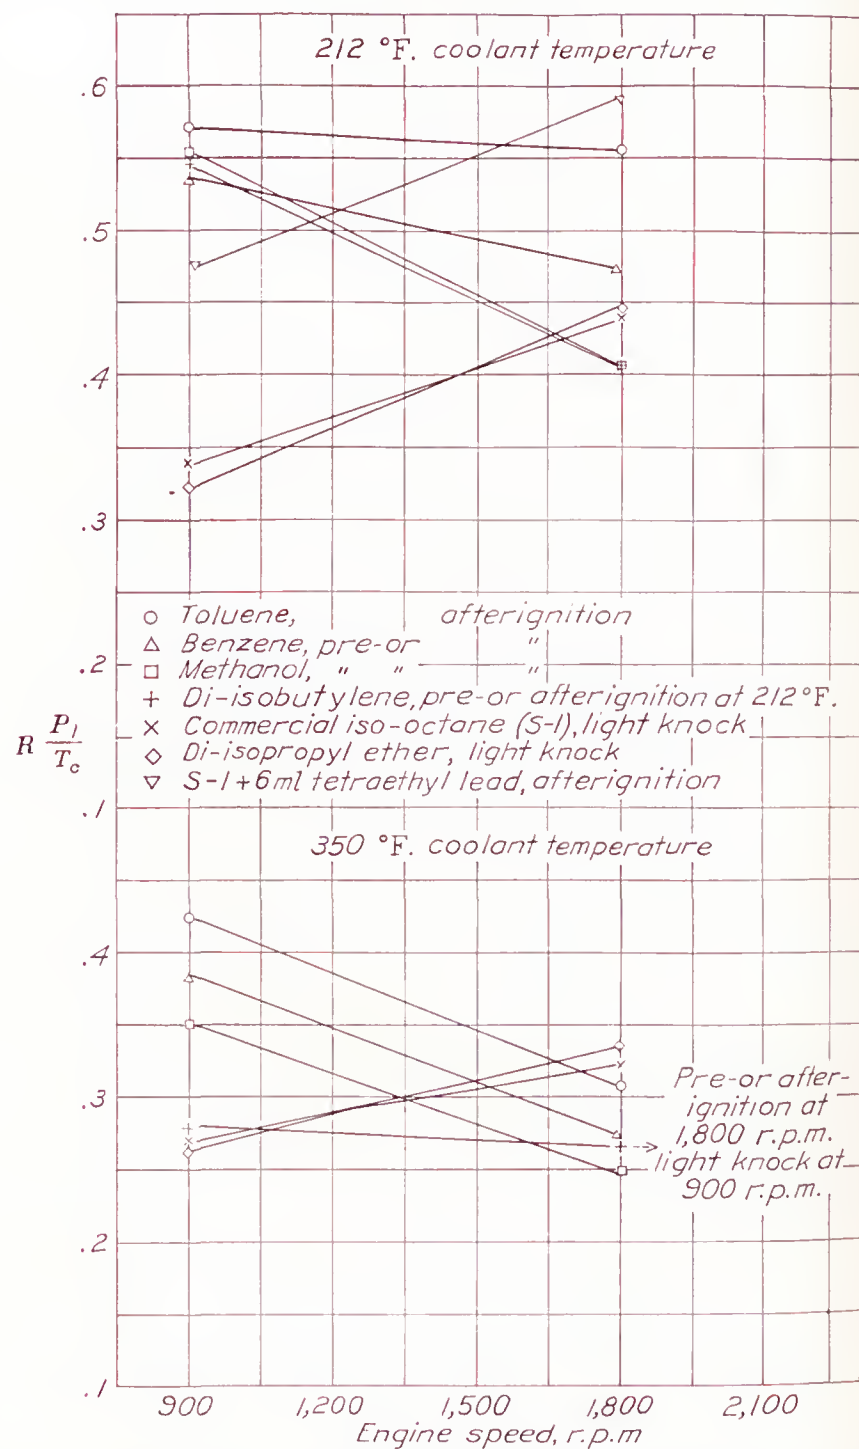 212 °F. coolant temperature
.6
.5
.4
.3
○ Toluene, afterignition
△ Benzene, pre-or "
.2
□ Methanol, " " "
+ Di-isobutylene, pre-or afterignition at 212°F.
× Commercial iso-octane (S-1), light knock
R P1/Tc
◇ Di-isopropyl ether, light knock
▽ S-1+6ml tetraethyl lead, afterignition
.1
350 °F. coolant temperature
.4
.3
.2
.1
Pre-or after-
ignition at
1,800 r.p.m.
light knock at
900 r.p.m.
900 1,200 1,500 1,800 2,100
Engine speed, r.p.m